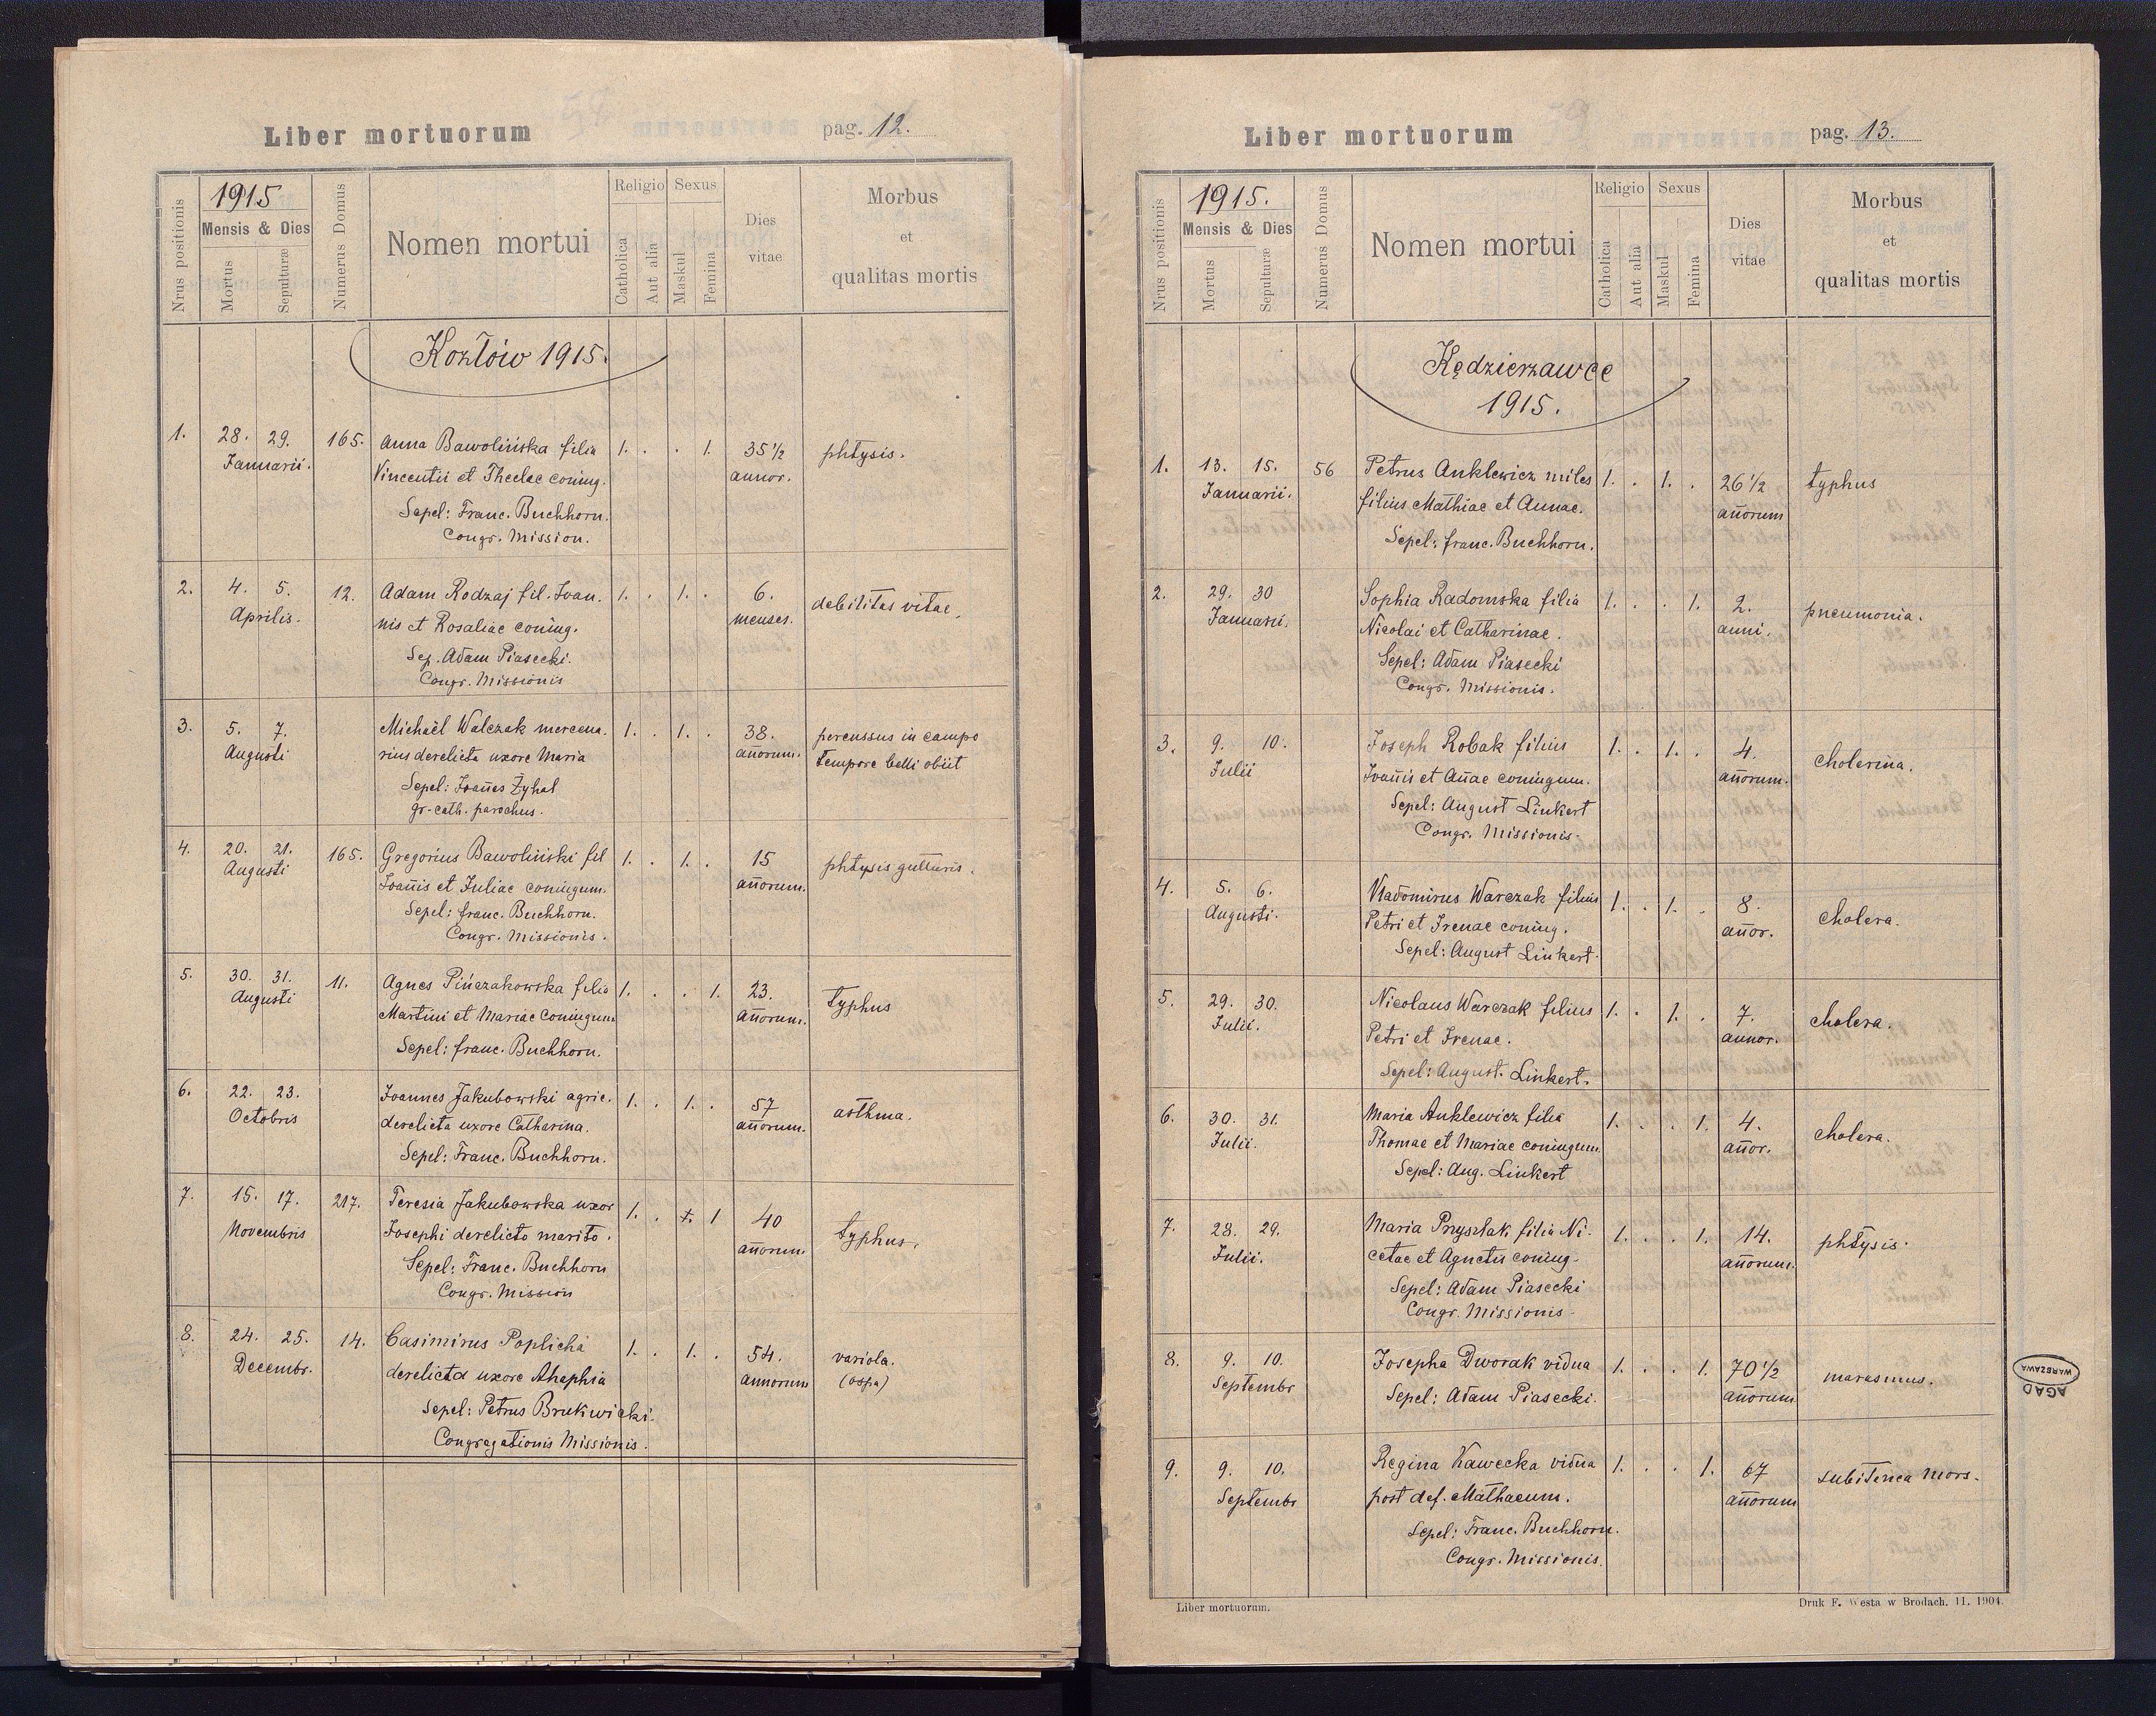 Liber mortuorum pag. 12.
Nrus positionis
1915
Mensis & Dies
Mortus
Sepulturæ
Numerus Domus
Nomen mortui
Religio
Catholica
Aut alia
Sexus
Maskul
Femina
Dies
vitae
Morbus
et
qualitas mortis
Kozłów 1915.
1. 28. 29. 165. Anna Bawolińska filia 1. . . 1. 35 1/2 phtysis.
Januarii. Vincentii et Theclae coniug. annor.
Sepel: Franc. Buchhorn.
Congr. Mission.
2. 4. 5. 12. Adam Rodzaj fil. Ioan- 1. . 1. . 6. debilitas vitae.
Aprilis. nis et Rosaliae coniug. menses.
Sep. Adam Piasecki.
Congr. Missionis
3. 5. 7. Michaël Walczak mercena- 1. . 1. . 38. percussus in campo
Augusti rius derelicta uxore Maria añorum. tempore belli obiit
Sepel: Joañes Żyhal
gr-cath. parochus.
4. 20. 21. 165. Gregorius Bawoliński fil 1. . 1. . 15 phtysis gutturis.
Augusti Ioañis et Juliae coniugum. añorum.
Sepel: franc. Buchhorn.
Congr. Missionis.
5. 30. 31. 11. Agnes Pińczakowska filia 1. . . 1. 23. typhus
Augusti Martini et Mariae coniugum añorum.
Sepel: franc. Buchhorn.
6. 22. 23. Ioannes Jakubowski agric. 1. . 1. . 57 asthma.
Octobris derelicta uxore Catharina. añorum.
Sepel: Franc. Buchhorn.
7. 15. 17. 217. Teresia Jakubowska uxor 1. . 1. 1 40 typhus.
Novembris Josephi derelicto marito. añorum.
Sepel: Franc. Buchhorn
Congr. Mission
8. 24. 25. 14. Casimirus Poplicha 1. . 1. . 54. variola.
Decembr. derelicta uxore Ahaphia annorum (ospa)
Sepel: Petrus Brukwicki.
Congregationis Missionis.
Liber mortuorum pag. 13.
Nrus positionis
1915.
Mensis & Dies
Mortus
Sepulturæ
Numerus Domus
Nomen mortui
Religio
Catholica
Aut alia
Sexus
Maskul
Femina
Dies
vitae
Morbus
et
qualitas mortis
Kędzierzawce
1915.
1. 13. 15. 56 Petrus Anklewicz miles 1. . 1. . 26 1/2 typhus
Januarii. filius Mathiae et Annae. añorum
Sepel: franc. Buchhorn.
2. 29. 30 Sophia Radomska filia 1. . . 1. 2. pneumonia.
Januarii. Nicolai et Catharinae. anni.
Sepel: Adam Piasecki
Congr. Missionis.
3. 9. 10. Joseph Robak filius 1. . 1. . 4. cholerina.
Julii Ioañis et Añae coniugum. añorum.
Sepel: August Linkert
Congr. Missionis.
4. 5. 6. Vladomirus Warczak filius 1. . 1. . 8. cholera.
Augusti. Petri et Irenae coniug. añor.
Sepel: August Linkert.
5. 29. 30. Nicolaus Warczak filius 1. . 1. . 7. cholera.
Julii. Petri et Irenae. annor.
Sepel: August. Linkert.
6. 30. 31. Maria Anklewicz filia 1. . . 1. 4. cholera.
Julii. Thomae et Mariae coniugum. añor.
Sepel: Aug. Linkert
7. 28. 29. Maria Przyszlak filia Ni- 1. . . 1. 14. phtysis.
Julii. cetae et Agnetis coniug. añorum.
Sepel: Adam Piasecki
Congr. Missionis.
8. 9. 10. Josepha Dworak vidua 1. . . 1. 70 1/2 marasmus.
Septembr Sepel: Adam Piasecki. añorum
9. 9. 10. Regina Kawecka vidua 1. . . 1. 67 subitanea mors.
Septembr post def. Mathaeum. añorum
Sepel: Franc. Buchhorn.
Congr. Missionis.
Liber mortuorum.
Druk F. Westa w Brodach. 11. 1904.
AGAD
WARSZAWA